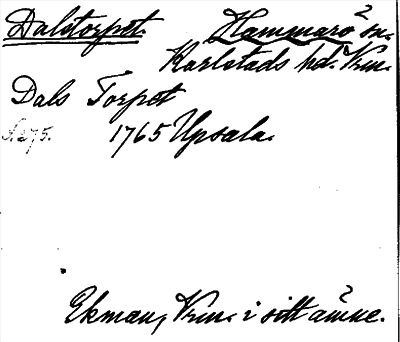 Dalstorpet. Hammarö sn.
Karlstads hd. Vrm.
Dals Torpet
S. 275. 1765 Upsala.
Ekman, Vrm. i sitt ämne.